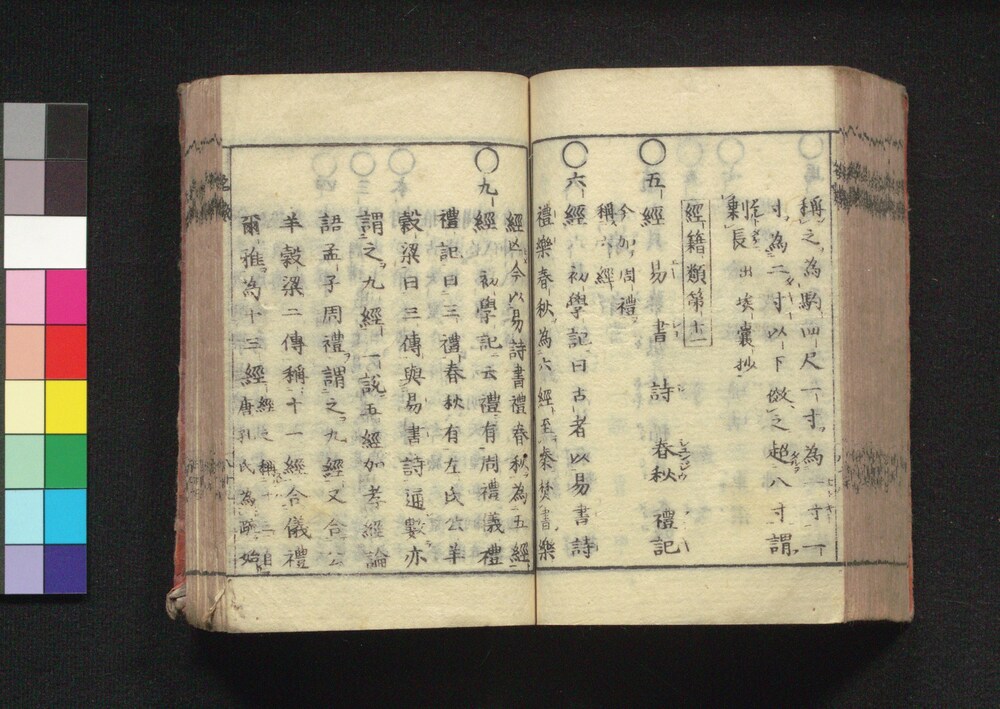 稱之為駒四尺一寸為一寸一
寸為二寸以下倣之超八寸謂
長出埃嚢抄
經籍類第十二
○五經 易 書 詩 春秋 禮記
今加周禮
稱六經
○六經 初學記曰古者以易書詩
禮樂春秋為六經至秦焚書樂
經亡今以易詩書禮春秋為五經
○九經 初學記云禮有周禮儀禮
禮記曰三禮春秋有左氏公羊
穀梁曰三傳與易書詩通數亦
謂之九經一說五經加孝經論
語孟子周禮謂之九經又合公
羊穀梁二傳稱十一經合儀禮
爾雅為十三經
經之稱十三自
唐孔氏為疏始